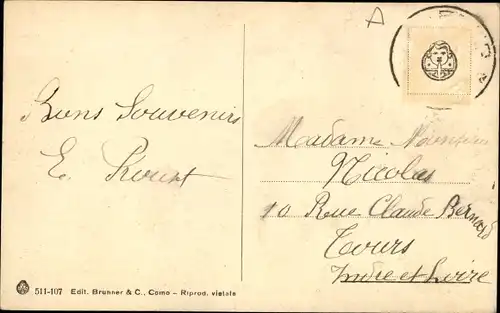 Bons Souvenirs
E.
Madame Monsieur
Nicolas
10 Rue Claude Bernard
Tours
Indre et Loire
511-107 Edit. Brunner & C., Como - Riprod. vietata